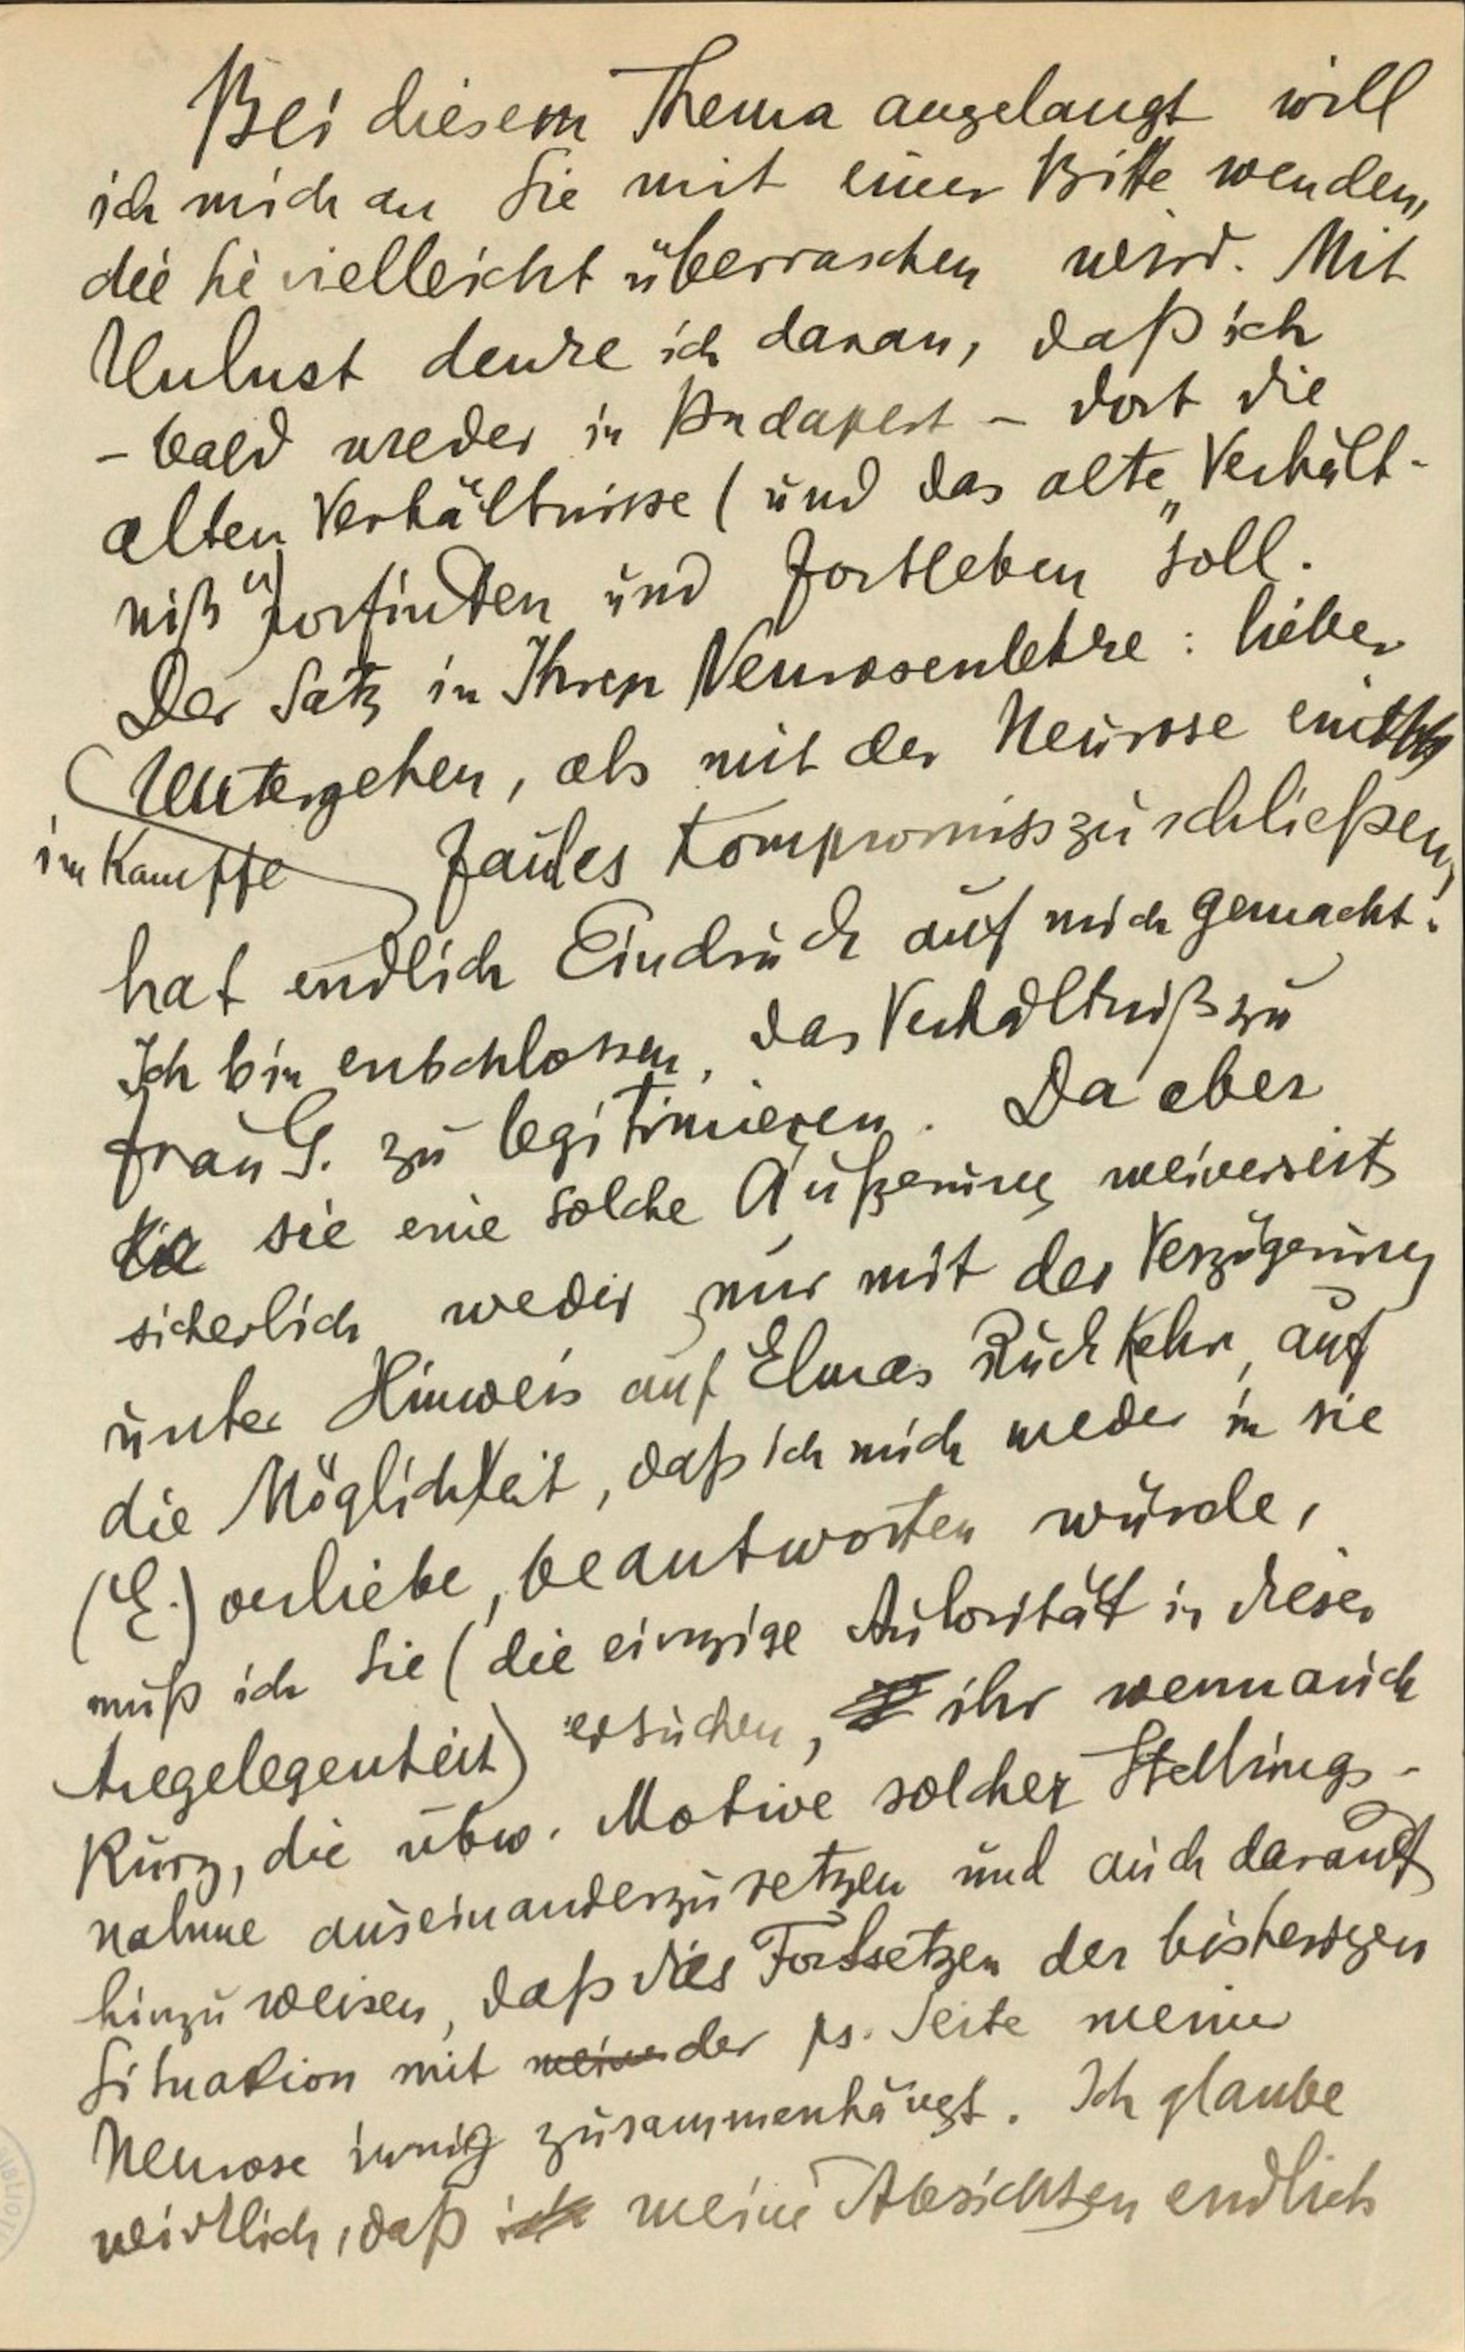 Bei diesem Thema angelangt will
ich mich an Sie mit einer Bitte wenden,
die Sie vielleicht überraschen wird. Mit
Unlust denke ich daran, daß ich
– bald wieder in Budapest – dort die
alten Verhältnisse (und das alte „Verhält-
niß“) vorfinden und fortleben soll.
Der Satz in Ihrer Neurosenlehre: lieber
Untergehen, als mit der Neurose ein
im Kampfe
faules Kompromiss zu schließen,
hat endlich Eindruck auf mich gemacht.
Ich bin entschlossen, das Verhältniß zu
Frau G. zu legitimieren. Da aber
sie eine solche Äußerung meinerseits
sicherlich wieder nur mit der Verzögerung
unter Hinweis auf Elmas Rückkehr, auf
die Möglichkeit, daß ich mich wieder in sie
(E.) verliebe, beantworten würde,
muß ich Sie (die einzige Autorität in dieser
Angelegenheit) ersuchen, ihr wenn auch
kurz, die ubw. Motive solcher Stellungs-
nahme auseinanderzusetzen und auch darauf
hinzuweisen, daß dies Fortsetzen der bisherigen
Situation mit meiner der ps. Seite meiner
Neurose innig zusammenhängt. Ich glaube
wirklich, daß ich meine Absichten endlich